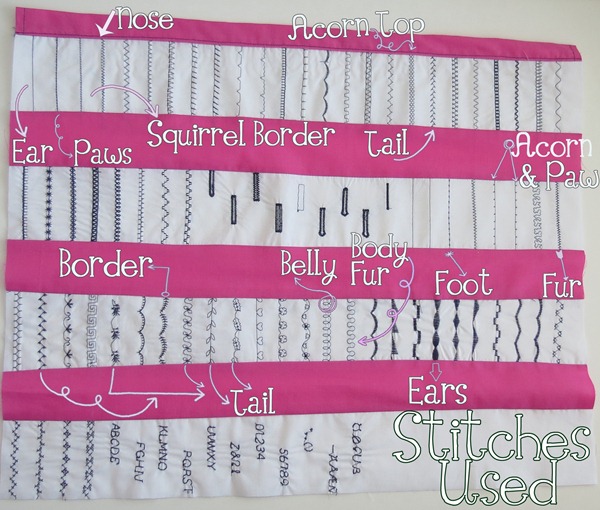 Nose
Acorn Top
Squirrel Border
Tail
Acorn
& Paw
Ear
Paws
Border
Belly
Body
Fur
Foot
Fur
Tail
Ears
Stitches
Used
ABCDE
FGHIJ
KLMNO
PQRST
UVWXY
Z&
01234
56789